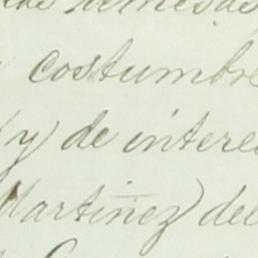 remesas
costumbre
y) de interes
Martinez) del